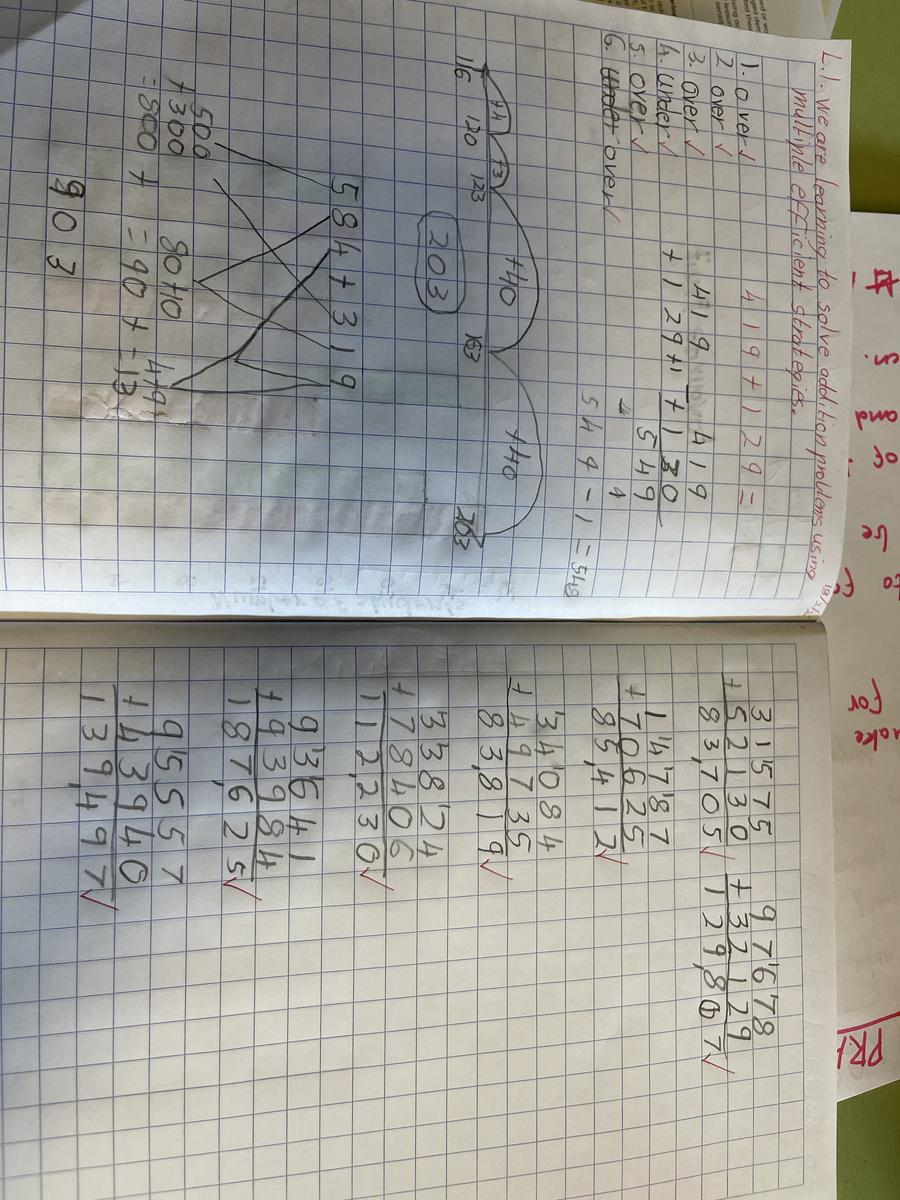 L.I. We are learning to solve addition problems using
multiple efficient strategies.
419 + 129 =
1. over ✓
2 over ✓
3. over ✓
4. under ✓
5. over ✓
6. under over ✓
419 419
+ 129+1 + 130
549
549 - 1 = 548
+4 +3 +40 +40
116 120 123 163 203
203
584 + 319
500 80+10 4+9
+300
= 800 + = 90 + = 13
903
31575
+ 52130
83,705 ✓
97678
+ 32129
129,807 ✓
14787
+ 70625
85,412 ✓
34084
+ 49735
83,819 ✓
33824
+ 78406
112,230 ✓
93641
+ 93984
187,625 ✓
95557
+ 43940
139,497 ✓
S.
and
or
be
to
For
make
PRA